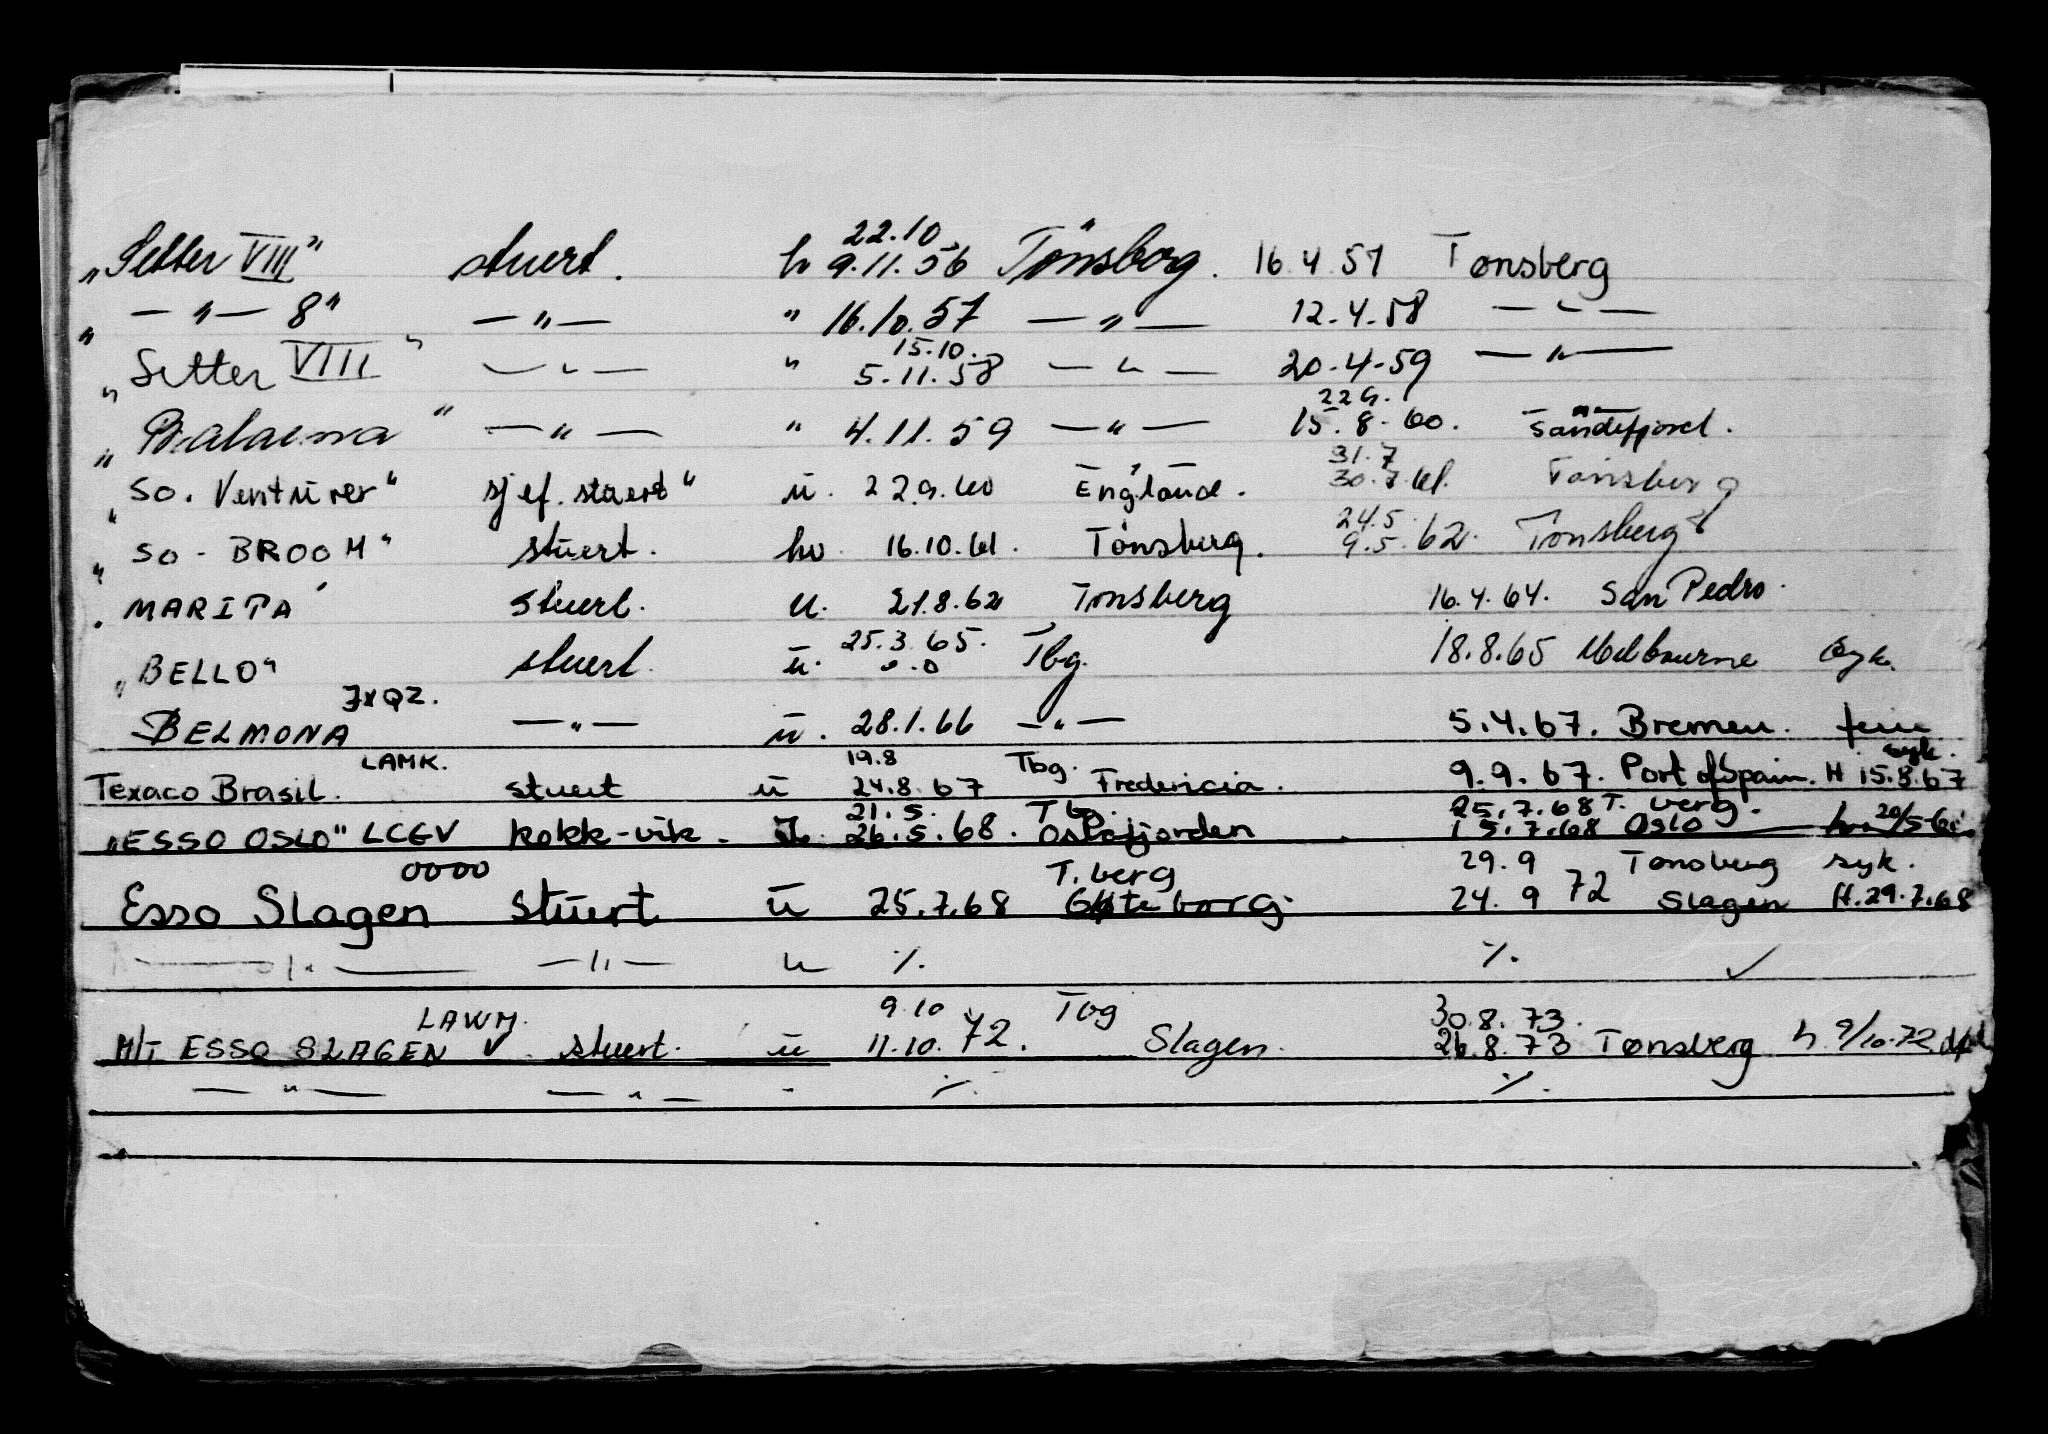 22.10
"Setter VIII" stuert. hv 9.11.56 Tönsberg. 16.4.57 Tønsberg
" — " — 8" — " — " 16.10.57 — " — 12.4.58 — " —
15.10.
"Setter VIII" — " — " 5.11.58 — " — 20.4.59 — " —
22.9.
"Balaena" — " — " 4.11.59 — " — 15.8.60. Sandefjord.
31.7
"So. Venturer" sjef. stuert" u. 22.9.60 England. 30.7.61. Tønsberg
24.5.
"So - BROOM" stuert. hv. 16.10.61. Tønsberg. 9.5.62. Tønsberg
"MARITA" stuert. u. 21.8.62 Tønsberg 16.4.64. San Pedro.
25.3.65.
"BELLO" stuert. u. Tbg. 18.8.65 Melbourne syk.
JXQZ.
BELMONA — " — u. 28.1.66 — " — 5.4.67. Bremen. ferie
LAMK. 19.8 Tbg. syk.
Texaco Brasil. stuert u 24.8.67 Fredericia. 9.9.67. Port of Spain. H 15.8.67
21.5. Tbg. 25.7.68 T.berg.
"ESSO OSLO" LCGV kokk-vik. u. 26.5.68. Oslofjorden 15.7.68 Oslo
0000 T.berg 29.9 Tønsberg syk.
Esso Slagen stuert u 25.7.68 Gøteborg. 24.9 72 Slagen H.29.7.68
— " — — " — u %. %. ✓
LAWM. 9.10 Tbg 30.8.73.
M/T ESSO SLAGEN ✓ stuert. u 11.10.72. Slagen. 26.8.73 Tønsberg h. 9/10.72
— " — — " — " %. %.